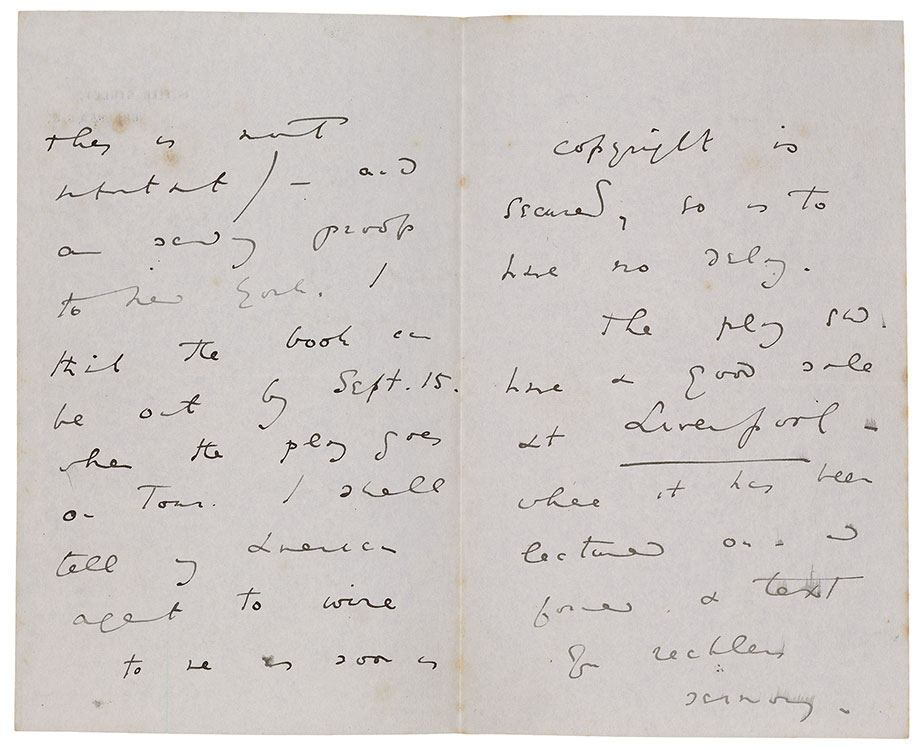 this is most
important) – and
am sending proofs
to New York. I
think the book can
be out by Sept. 15.
when the play goes
on Tour. I shall
tell my American
agent to wire
to me as soon as
copyright is
secured, so as to
have no delay.
The play shd.
have a good sale
at Liverpool –
where it has been
lectured on – and
formed a text
for reckless
sermons.